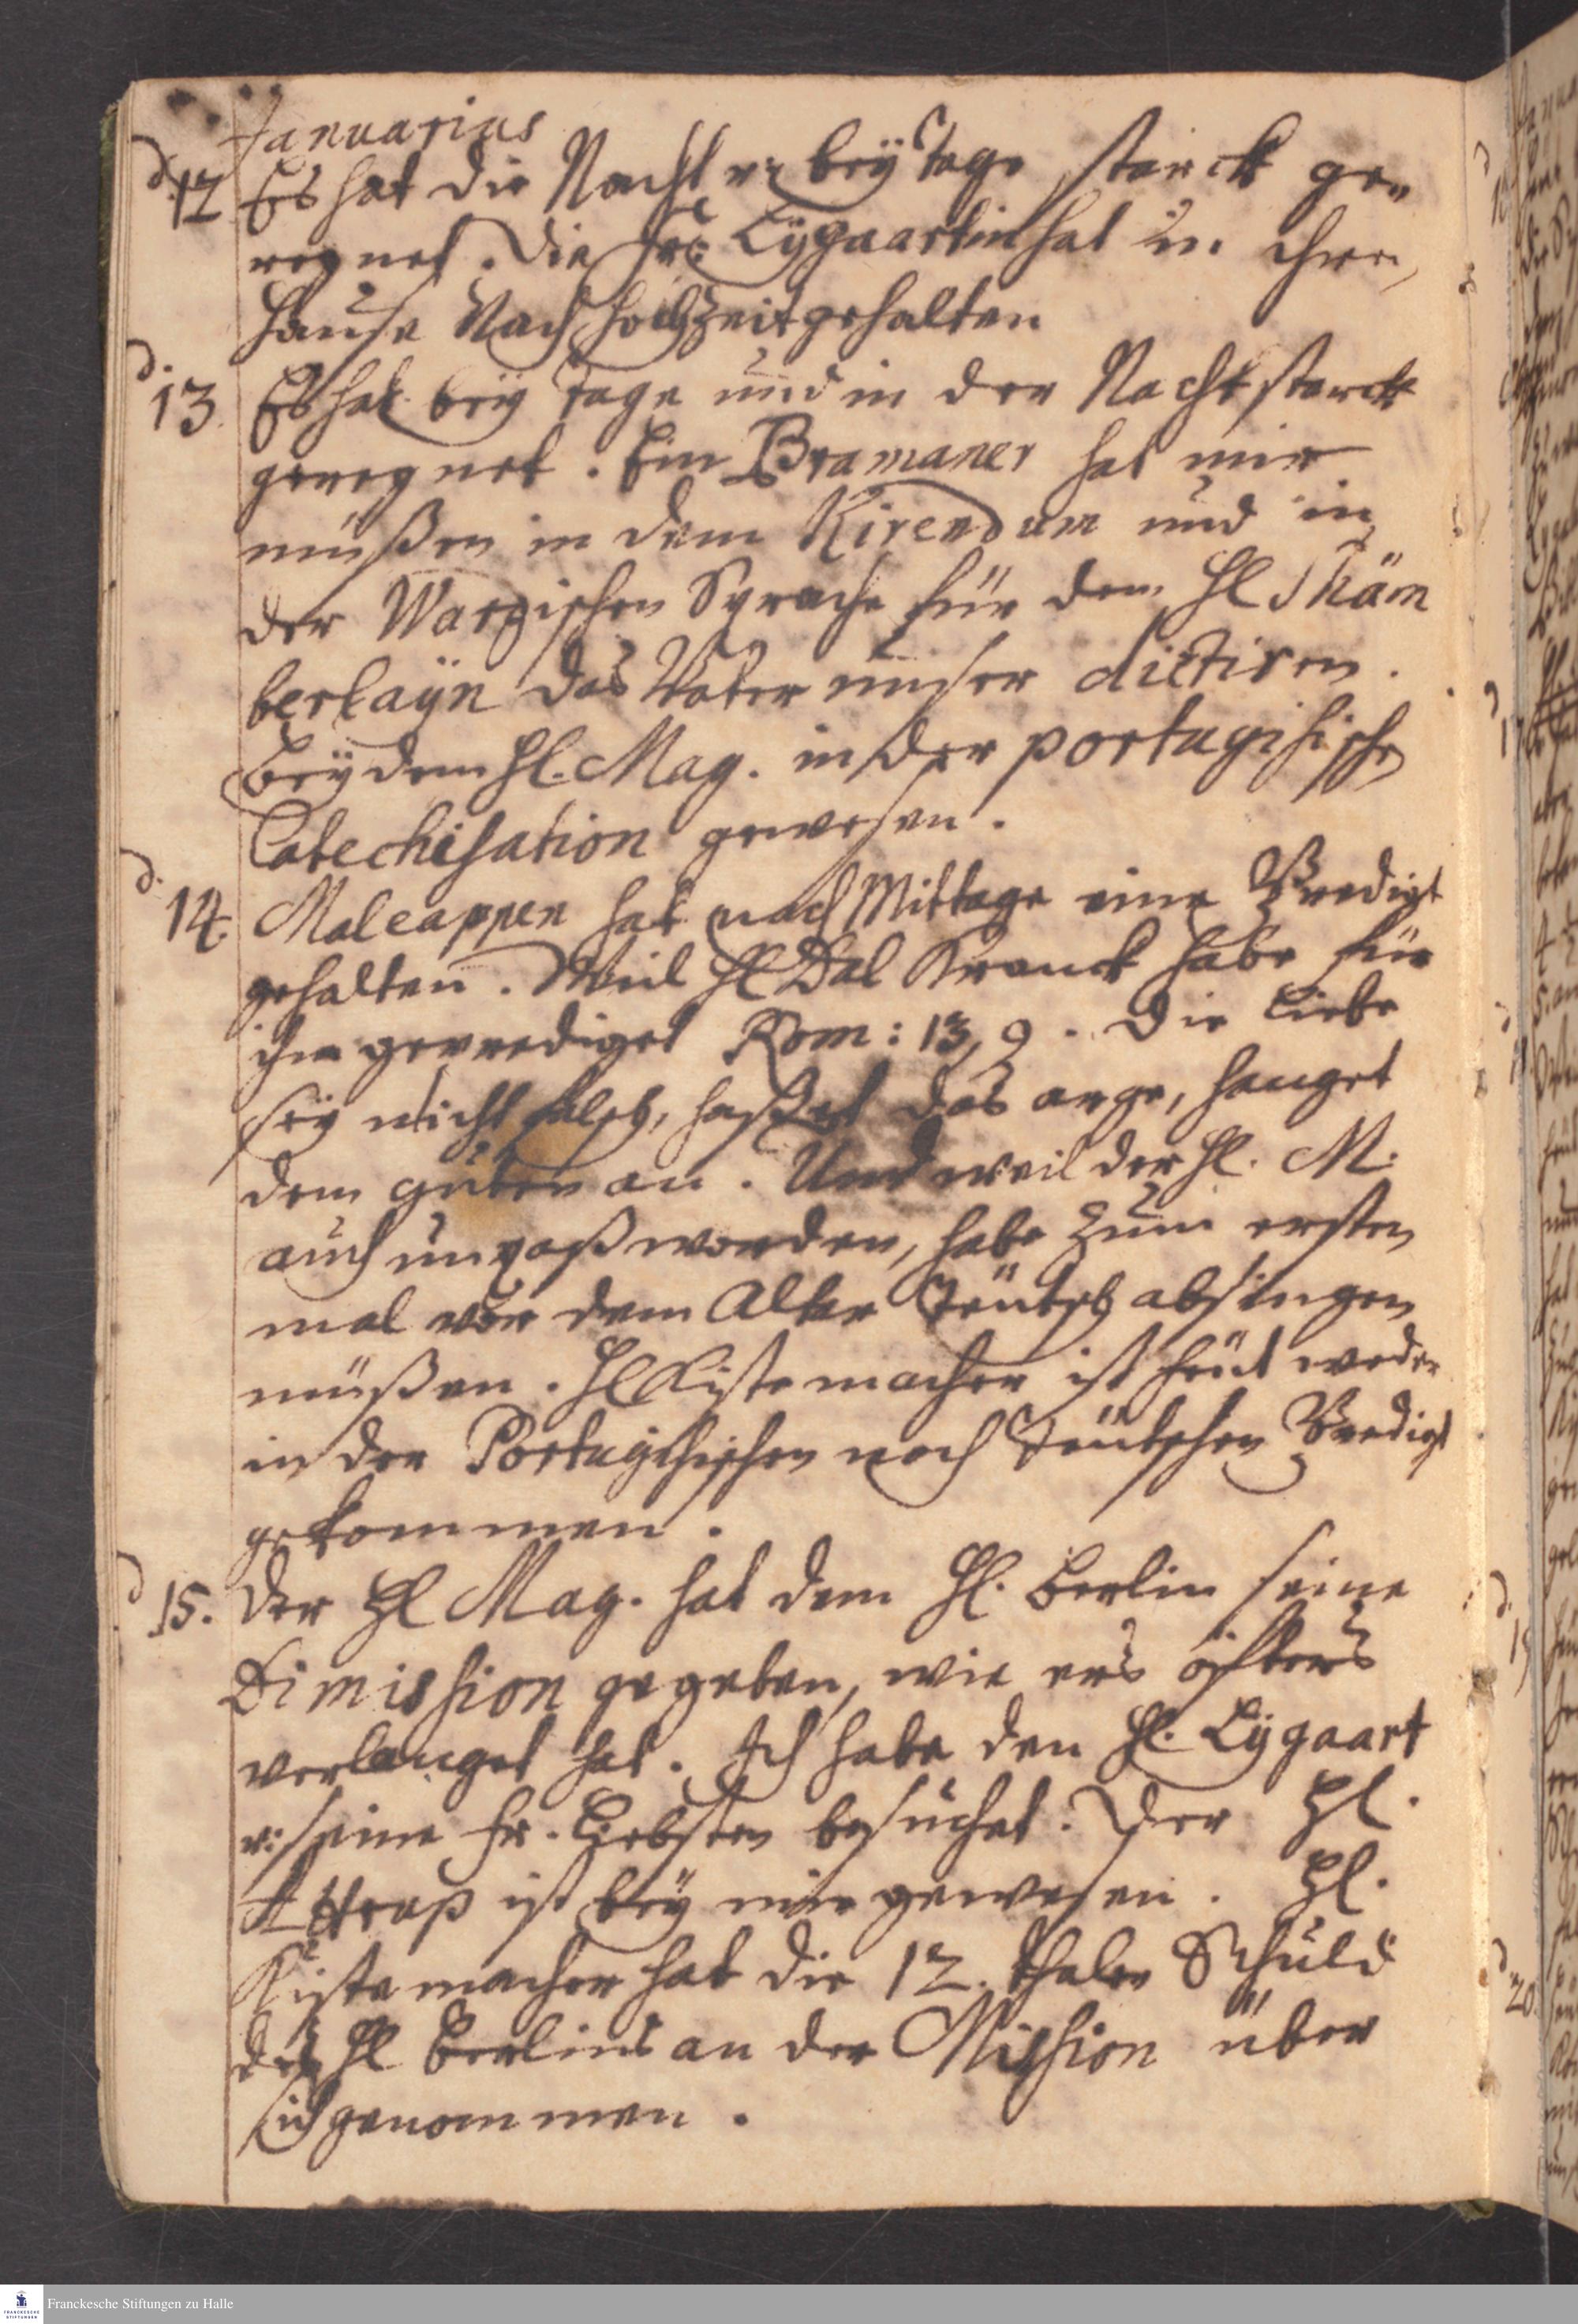 Januarius
d. 12 Es hat die Nacht u: bey Tage starck ge„
regnet. Die Fr: Lÿgaartin hat in ihren
Hause Nach hochzeit gehalten
d. 13. Es hat bey Tage und in der Nacht starck
geregnet. Ein Bramaner hat mir
müßen in dem Kirendum und in
der Warugischen Sprache für den Hl Thäm
berlaÿn das Vater unser dictiren.
Bey dem Hl. Mag. in der portugisische
Catechisation gewesen.
d. 14. Maleappen hat nach Mittage eine Predigt
gehalten. Weil Hl Dal Kranck habe für
ihn geprediget Rom: 13, 9. Die Liebe
sey nicht falsch, haßet das arge, hanget
dem guten an. Und weil der Hl. M.
auch unpaß worden, habe zum ersten
mal vor dem Altar Teütsch absingen
müßen. Hl Kistemacher ist heut weder
in der Portugisischen noch Teütschen Predigt
gekommen.
d. 15. Der Hl Mag. hat dem Hl. Berlin seine
Dimission gegeben, wie ers öfters
verlanget hat. Ich habe den Hl. Lÿgaart
u: seine Fr. Liebsten besuchet. Der Hl.
Attrup ist bey mir gewesen. Hl.
Kistemacher hat die 12. thaler Schuld
des Hl Berlins an der Mission über
sich genommen.
Franckesche Stiftungen zu Halle